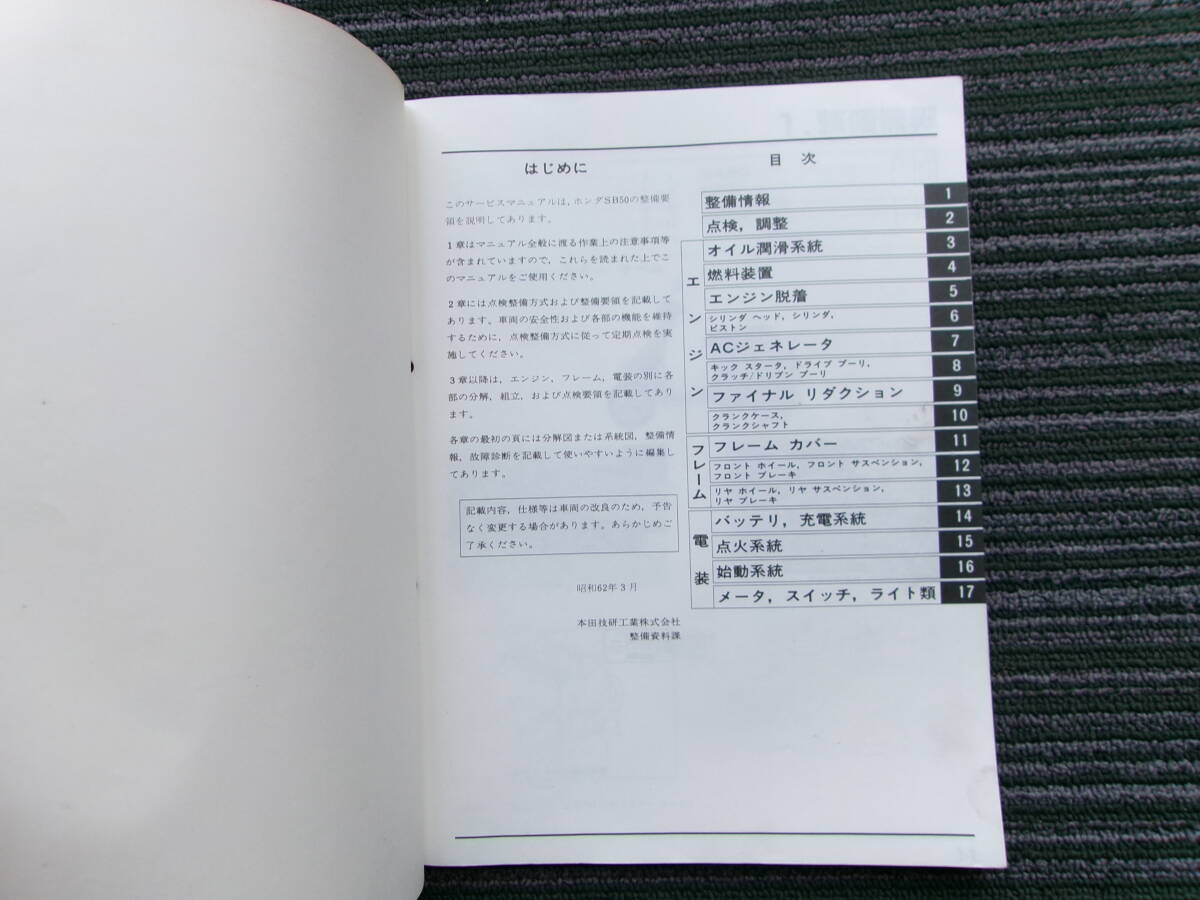 はじめに
このサービスマニュアルは，ホンダSB50の整備要
領を説明してあります。
1章はマニュアル全般に渡る作業上の注意事項等
が含まれていますので，これらを読まれた上でこ
のマニュアルをご使用ください。
2章には点検整備方式および整備要領を記載して
あります。車両の安全性および各部の機能を維持
するために，点検整備方式に従って定期点検を実
施してください。
3章以降は，エンジン，フレーム，電装の別に各
部の分解，組立，および点検要領を記載してあり
ます。
各章の最初の頁には分解図または系統図，整備情
報，故障診断を記載して使いやすいように編集し
てあります。
記載内容，仕様等は車両の改良のため，予告
なく変更する場合があります。あらかじめご
了承ください。
昭和62年3月
本田技研工業株式会社
整備資料課
目 次
整備情報 1
点検，調整 2
エンジン
オイル潤滑系統 3
燃料装置 4
エンジン脱着 5
シリンダ ヘッド，シリンダ，
ピストン 6
ACジェネレータ 7
キック スタータ，ドライブ プーリ，
クラッチ/ドリブン プーリ 8
ファイナル リダクション 9
クランクケース，
クランクシャフト 10
フレーム
フレーム カバー 11
フロント ホイール，フロント サスペンション，
フロント ブレーキ 12
リヤ ホイール，リヤ サスペンション，
リヤ ブレーキ 13
電装
バッテリ，充電系統 14
点火系統 15
始動系統 16
メータ，スイッチ，ライト類 17